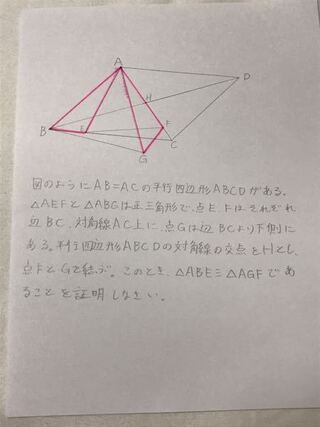 A
D
H
B
E
F
C
G
図のようにAB=ACの平行四辺形ABCDがある。
△AEFと△ABGは正三角形で、点E、Fはそれぞれ
辺BC、対角線AC上に、点Gは辺BCより下側に
ある。平行四辺形ABCDの対角線の交点をHとし、
点FとGを結ぶ。このとき、△ABE≡△AGFであ
ることを証明しなさい。